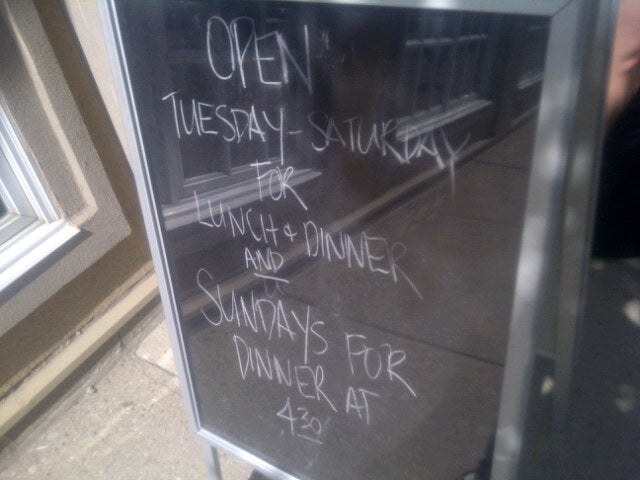 OPEN
TUESDAY - SATURDAY
FOR
LUNCH & DINNER
AND
SUNDAYS FOR
DINNER AT
430